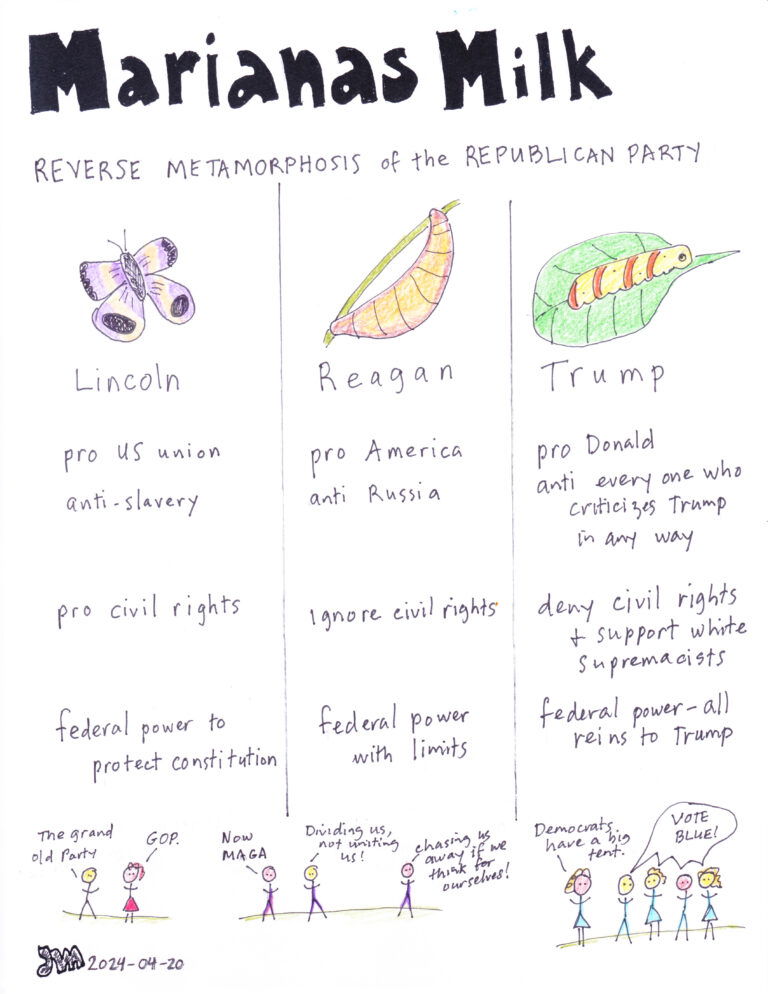 Marianas Milk
REVERSE METAMORPHOSIS of the REPUBLICAN PARTY
Lincoln
pro US union
anti-slavery
pro civil rights
federal power to
protect constitution
Reagan
pro America
anti Russia
Ignore civil rights
federal power
with limits
Trump
pro Donald
anti every one who
criticizes Trump
in any way
deny civil rights
+ support white
supremacists
federal power - all
reins to Trump
The grand
old Party
GOP.
Now
MAGA
Dividing us,
not uniting
us!
chasing us
away if we
think for
ourselves!
Democrats
have a big
tent.
VOTE
BLUE!
2024-04-20